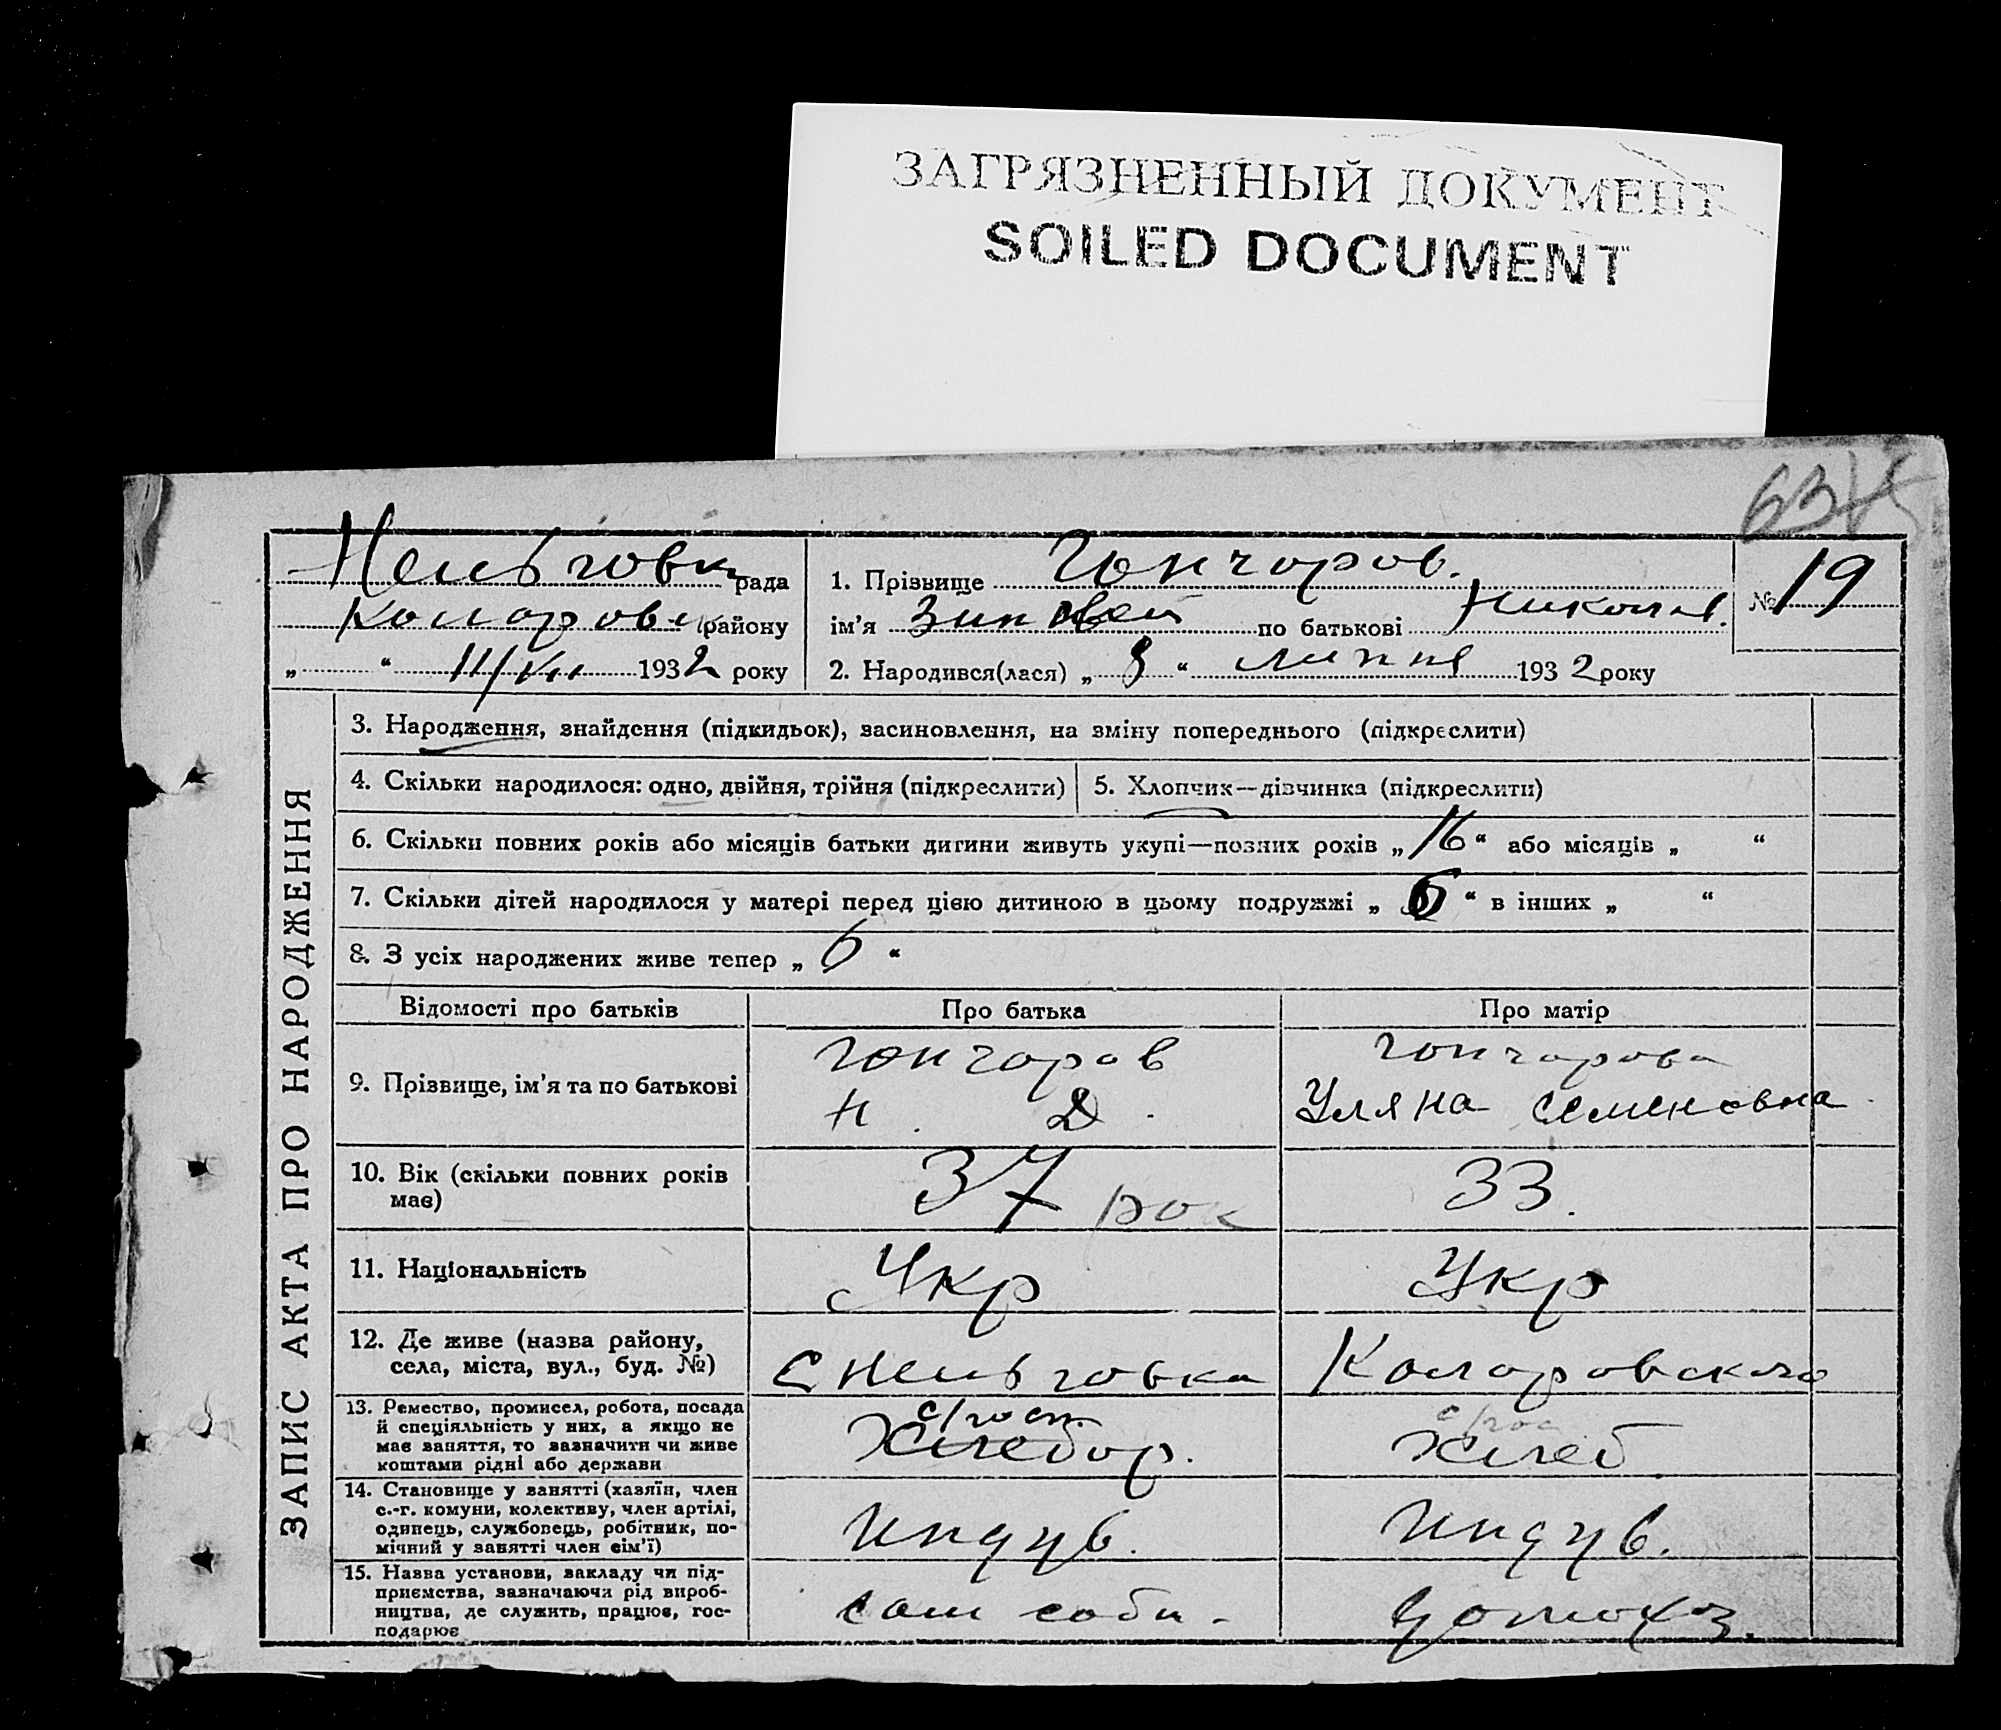 ЗАГРЯЗНЕННЫЙ ДОКУМЕНТ
SOILED DOCUMENT
Нельговк рада
Коларовск району
„ “ 11/VII 1932 року
1. Прізвище Гончаров.
ім’я Зиновей по батькові Никола
2. Народився(лася) „ 8 “ липня 1932 року
№ 19
ЗАПИС АКТА ПРО НАРОДЖЕННЯ
3. Народження, знайдення (підкидьок), засиновлення, на зміну попереднього (підкреслити)
4. Скільки народилося: одно, двійня, трійня (підкреслити)
5. Хлопчик—дівчинка (підкреслити)
6. Скільки повних років або місяців батьки дитини живуть укупі—повних років „ 16 “ або місяців „ “
7. Скільки дітей народилося у матері перед цією дитиною в цьому подружжі „ 6 “ в інших „ “
8. З усіх народжених живе тепер „ 6 “
Відомості про батьків
Про батька
Про матір
9. Прізвище, ім’я та по батькові
Гончаров
Н. Д.
Гончарова
Уляна Семеновна
10. Вік (скільки повних років
має)
37 рок
33.
11. Національність
Укр
Укр
12. Де живе (назва району,
села, міста, вул., буд. №)
С Нельговка
Коларовского
13. Ремество, промисел, робота, посада
й спеціяльність у них, а якщо не
має заняття, то зазначити чи живе
коштами рідні або держави
с/госп.
Хлебор.
с/гос
Хлеб
14. Становище у занятті (хазяїн, член
с.-г. комуни, колективу, член артілі,
одинець, службовець, робітник, по-
мічний у занятті член сім’ї)
Индув.
Индув.
15. Назва установи, закладу чи під-
приємства, зазначаючи рід вироб-
ництва, де служить, працює, гос-
подарює
сам соби.
домохоз.